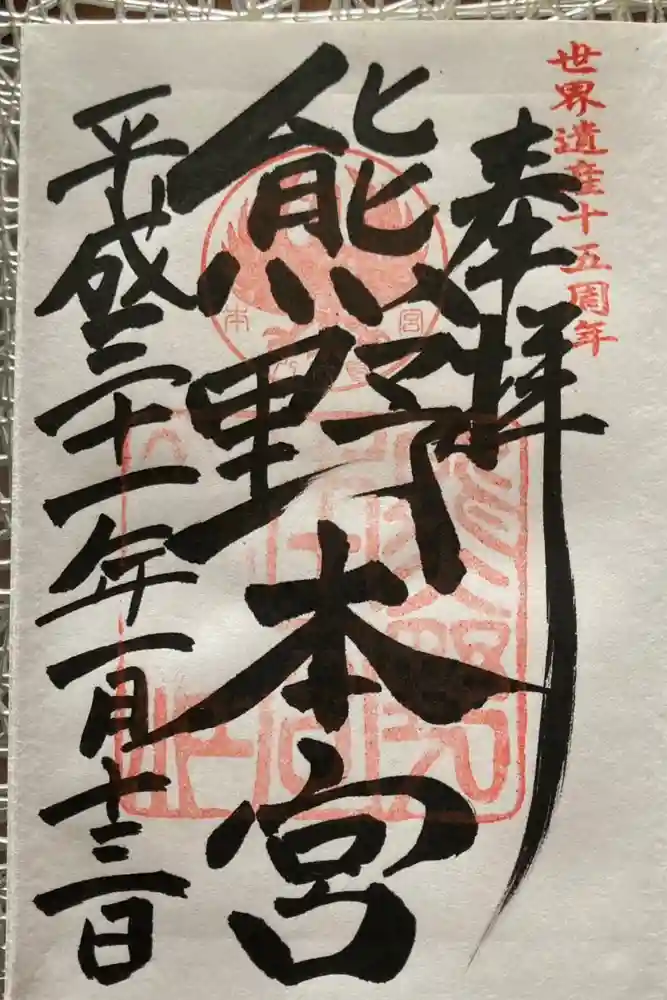 世界遺産十五周年
奉拝
熊野本宮
平成三十一年一月十三日
本
宮